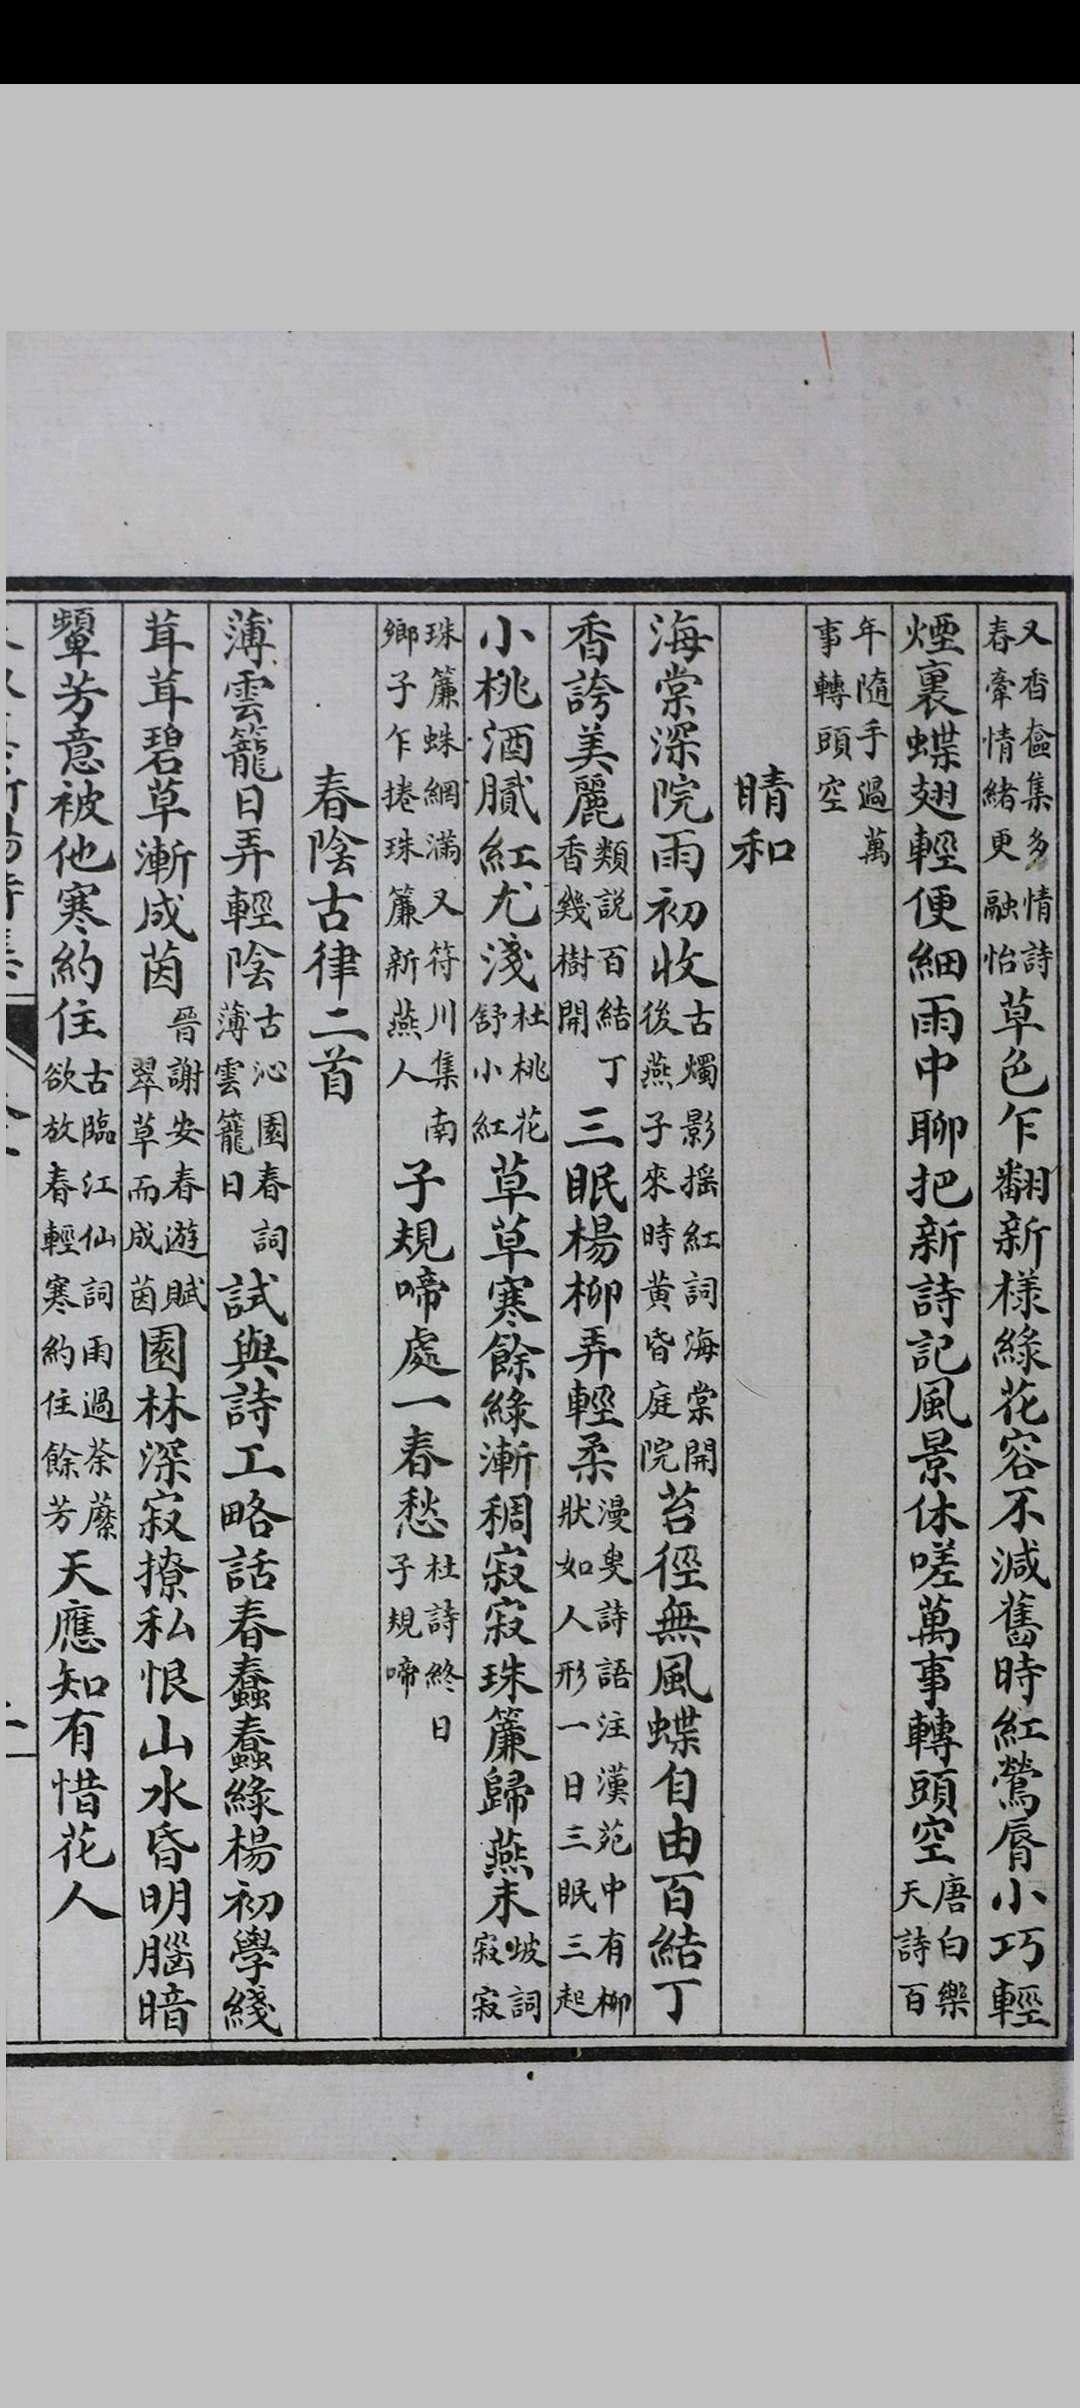 又香奩集多情詩
春牽情緒更融怡
草色乍翻新樣綠花容不減舊時紅鶯脣小巧輕
煙裏蝶翅輕便細雨中聊把新詩記風景休嗟萬事轉頭空
唐白樂
天詩百
年隨手過萬
事轉頭空
晴和
海棠深院雨初收
古燭影搖紅詞海棠開
後燕子來時黄昏庭院
苔徑無風蝶自由百結丁
香誇美麗
類説百結丁
香幾樹開
三眠楊柳弄輕柔
漫叟詩語注漢苑中有柳
狀如人形一日三眠三起
小桃酒膩紅尤淺
杜桃花
舒小紅
草草寒餘綠漸稠寂寂珠簾歸燕未
坡詞
寂寂
珠簾蛛網滿又符川集南
鄉子乍捲珠簾新燕人
子規啼處一春愁
杜詩終日
子規啼
春陰古律二首
薄雲籠日弄輕陰
古沁園春詞
薄雲籠日
試與詩工略話春蠶蠡綠楊初學綫
茸茸碧草漸成茵
晉謝安春遊賦
翠草而成茵
園林深寂撩私恨山水昏明腦暗
顰芳意被他寒約住
古臨江仙詞雨過荼蘼
欲放春輕寒約住餘芳
天應知有惜花人